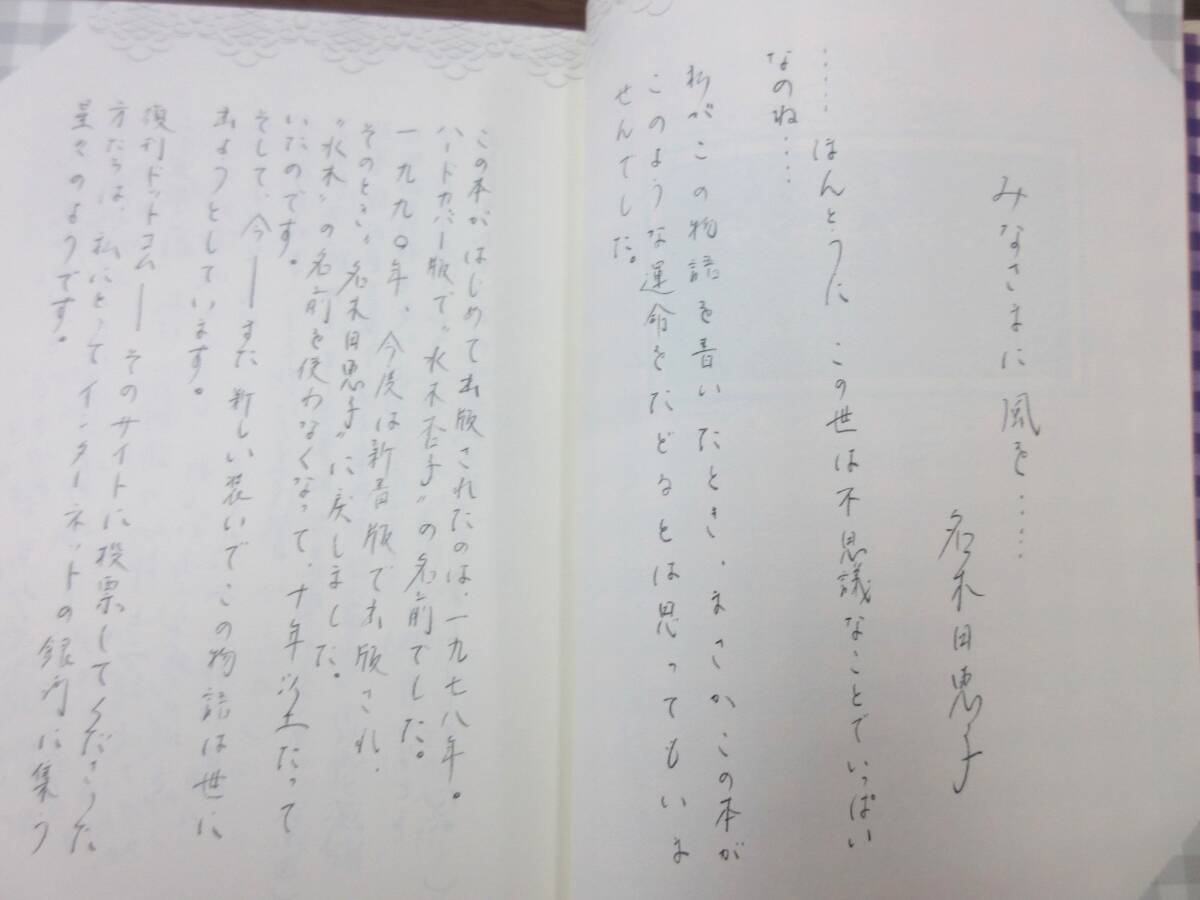 みなさまに 風を……
名木田恵子
……ほんとうに この世は不思議なことでいっぱい
なのね……
私がこの物語を書いたとき、まさか、この本が
このような運命をたどるとは思ってもいま
せんでした。
この本がはじめて出版されたのは、一九七八年。
ハードカバー版で〝水木杏子〟の名前でした。
一九九〇年、今度は新書版で出版され、
そのとき〝名木田恵子〟に戻しました。
〝水木〟の名前を使わなくなって、十年以上たって
いたのです。
そして、今――また新しい装いでこの物語は世に
出ようとしています。
復刊ドットコム―― そのサイトに投票してくださった
方たちは、私にとってインターネットの銀河に集う
星々のようです。